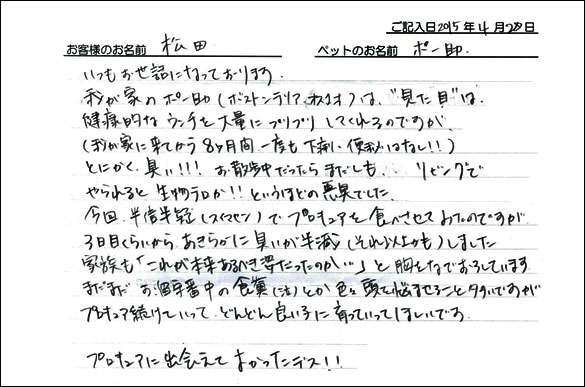 ご記入日2015年4月28日
お客様のお名前 松田 ペットのお名前 ポー助
いつもお世話になっております。
我が家のポー助(ボストンテリア、オス)は、"見た目"は
健康的なウンチを大量にブリブリしてくれるのですが
(我が家に来てから8ヶ月間、一度も下痢、便秘はなし!!)
とにかく、臭い!!! お散歩中だったらまだしも、、リビングで
やられると生物テロか!!というほどの悪臭でした。
今回、半信半疑(スイマセン)でプロキュアを食べさせてみたのですが
3日目くらいから、あきらかに臭いが半減(それ以上かも)しました
家族も「これが本来あるべき姿だったのか…」と胸をなでおろしています
まだまだ お留守番中の食糞(泣)とか色々頭を悩ませること多いですが
プロキュア続けていって、どんどん良い子に育っていってほしいです。
プロキュアに出会えてよかったデス!!